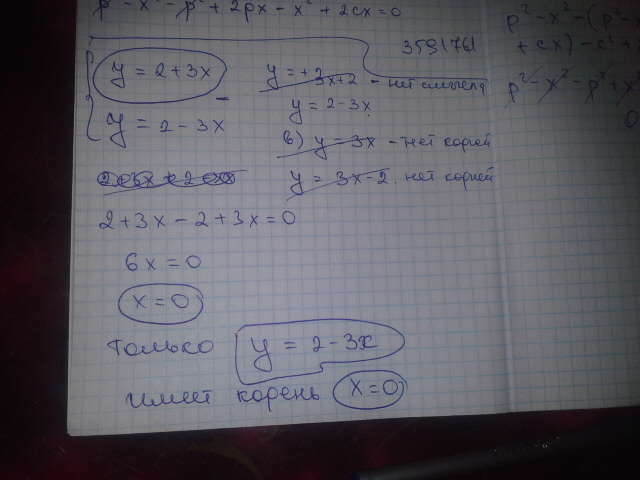 p² - x² - p² + 2px - x² + 2cx = 0
3591761
y = 2 + 3x
y = 2 - 3x
y = +3x+2 - нет смысла
y = 2 - 3x
в) y = 3x - нет корней
y = 3x - 2. нет корней
2 + 3x - 2 + 3x = 0
6x = 0
x = 0
только y = 2 - 3x
имеет корень x = 0
p² - x² - (p² -
+ cx) - c²
p² - x² - p² + x
0